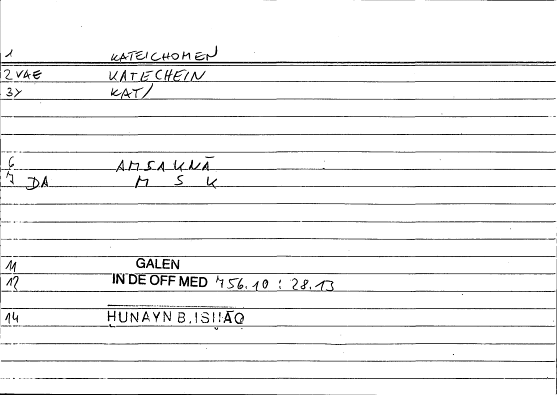 1 KATEICHOMEN
2 VAE KATECHEIN
3Y KAT/
6 AMSAKNĀ
7 DA M S K
11 GALEN
12 IN DE OFF MED 756.10 : 28.13
14 ḤUNAYN B. ISḤĀQ